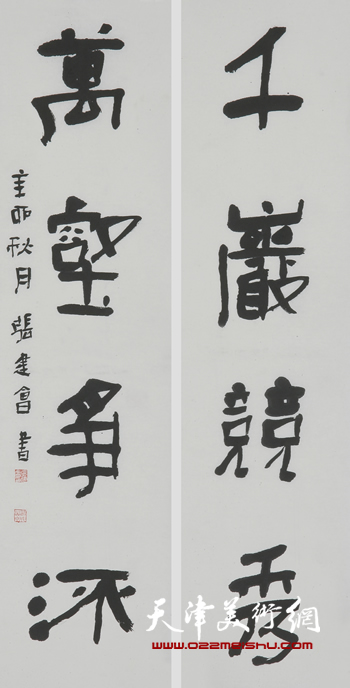 千巖競秀
萬壑爭流
辛卯秋月張建會書
天津美術網
www.022meishu.com